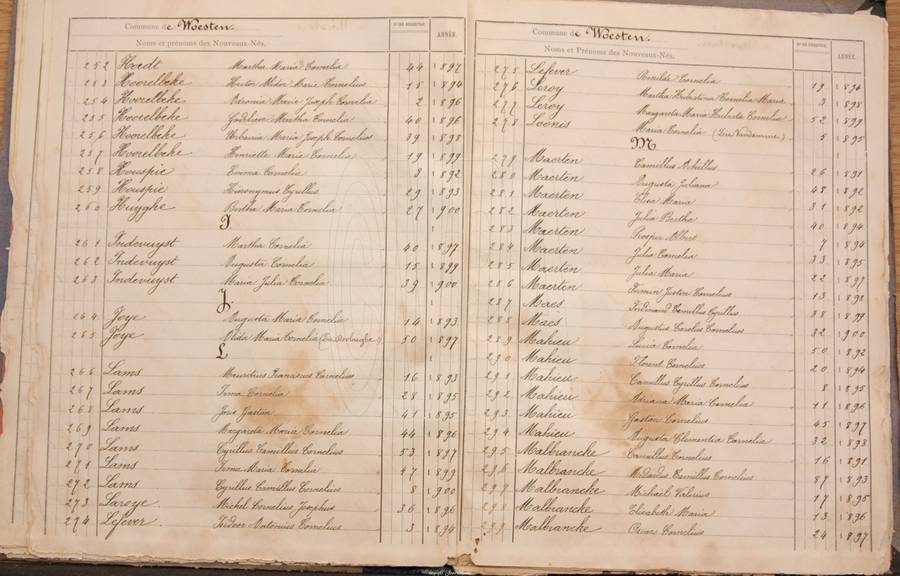 Commune de Woesten.
Noms et prénoms des Nouveaux-Nés. N° du Registre. ANNÉE.
252 Hoedt Martha Maria Cornelia 44 1897
253 Hoorelbeke Hector Marie Cornelius 15 1894
254 Hoorelbeke Marie Joseph Cornelia 2 1896
255 Hoorelbeke Martha Cornelia 40 1896
256 Hoorelbeke Maria Joseph Cornelia 39 1898
257 Hoorelbeke Henriette Marie Cornelia 19 1899
258 Houspie Emma Cornelia 3 1892
259 Houspie Hieronymus Cyrillus 29 1893
260 Huyghe Bertha Maria Cornelia 27 1900
I.
261 Indevuyst Martha Cornelia 40 1897
262 Indevuyst Augusta Cornelia 15 1899
263 Indevuyst Maria Julia Cornelia 39 1900
J.
264 Joye Augusta Maria Cornelia 14 1893
265 Joye Alida Maria Cornelia 50 1897
L
266 Lams Mauritius Franciscus Cornelius 16 1893
267 Lams Irma Cornelia 28 1895
268 Lams Gaston 41 1895
269 Lams Margareta Maria Cornelia 44 1896
270 Lams Cyrillus Camillus Cornelius 53 1897
271 Lams Irma Maria Cornelia 47 1899
272 Lams Cyrillus Camillus Cornelius 8 1900
273 Laroye Michel Cornelius Josephus 36 1896
274 Lefever Isidoor Antonius Cornelius 3 1894
Commune de Woesten.
Noms et Prénoms des Nouveaux-Nés. N° du Registre. ANNÉE.
275 Lefever Cornelia 19 1894
276 Leroy Martha Cornelia Maria 3 1898
277 Leroy Margareta Maria Cornelia 52 1899
278 Loonis Maria Cornelia 5 1895
M
279 Maerten Camillus Achillus 26 1891
280 Maerten Augusta Juliana 48 1892
281 Maerten Elisa Maria 31 1892
282 Maerten Julia Bertha 40 1894
283 Maerten Prosper Albert 7 1894
284 Maerten Julia Cornelia 33 1895
285 Maerten Julia Maria 22 1897
286 Maerten Firmin Justin Cornelius 13 1898
287 Maes Ferdinand Camillus Cyrillus 38 1899
288 Maes Augustus Carolus Cornelius 32 1900
289 Mahieu Cornelia 50 1892
290 Mahieu Florent Cornelius 20 1894
291 Mahieu Camillus Cyrillus Cornelius 8 1895
292 Mahieu Adriana Maria Cornelia 11 1896
293 Mahieu Gaston Cornelius 45 1897
294 Mahieu Augusta Clementia Cornelia 32 1898
295 Malbrancke Camillus Cornelius 16 1891
296 Malbrancke Medardus Camillus Cornelius 87 1893
297 Malbrancke Michaël Valerius 17 1895
298 Malbrancke Elisabeth Maria 13 1896
299 Malbrancke Oscar Cornelius 24 1897